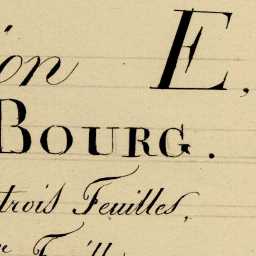 on E,
BOURG.
trois Feuilles,